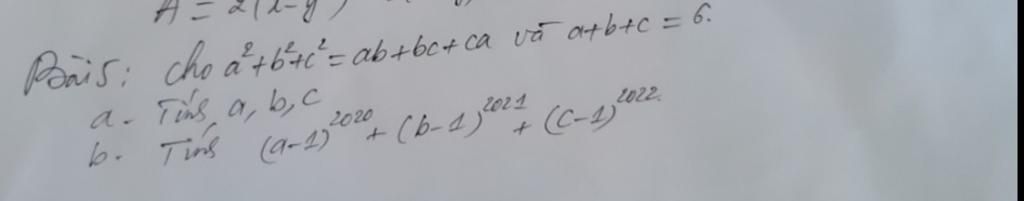 A = 2(x-y
Bài 5: Cho a²+b²+c² = ab+bc+ca và a+b+c = 6.
a. Tính a, b, c
b. Tính (a-1)²⁰²⁰ + (b-1)²⁰²¹ + (c-1)²⁰²²